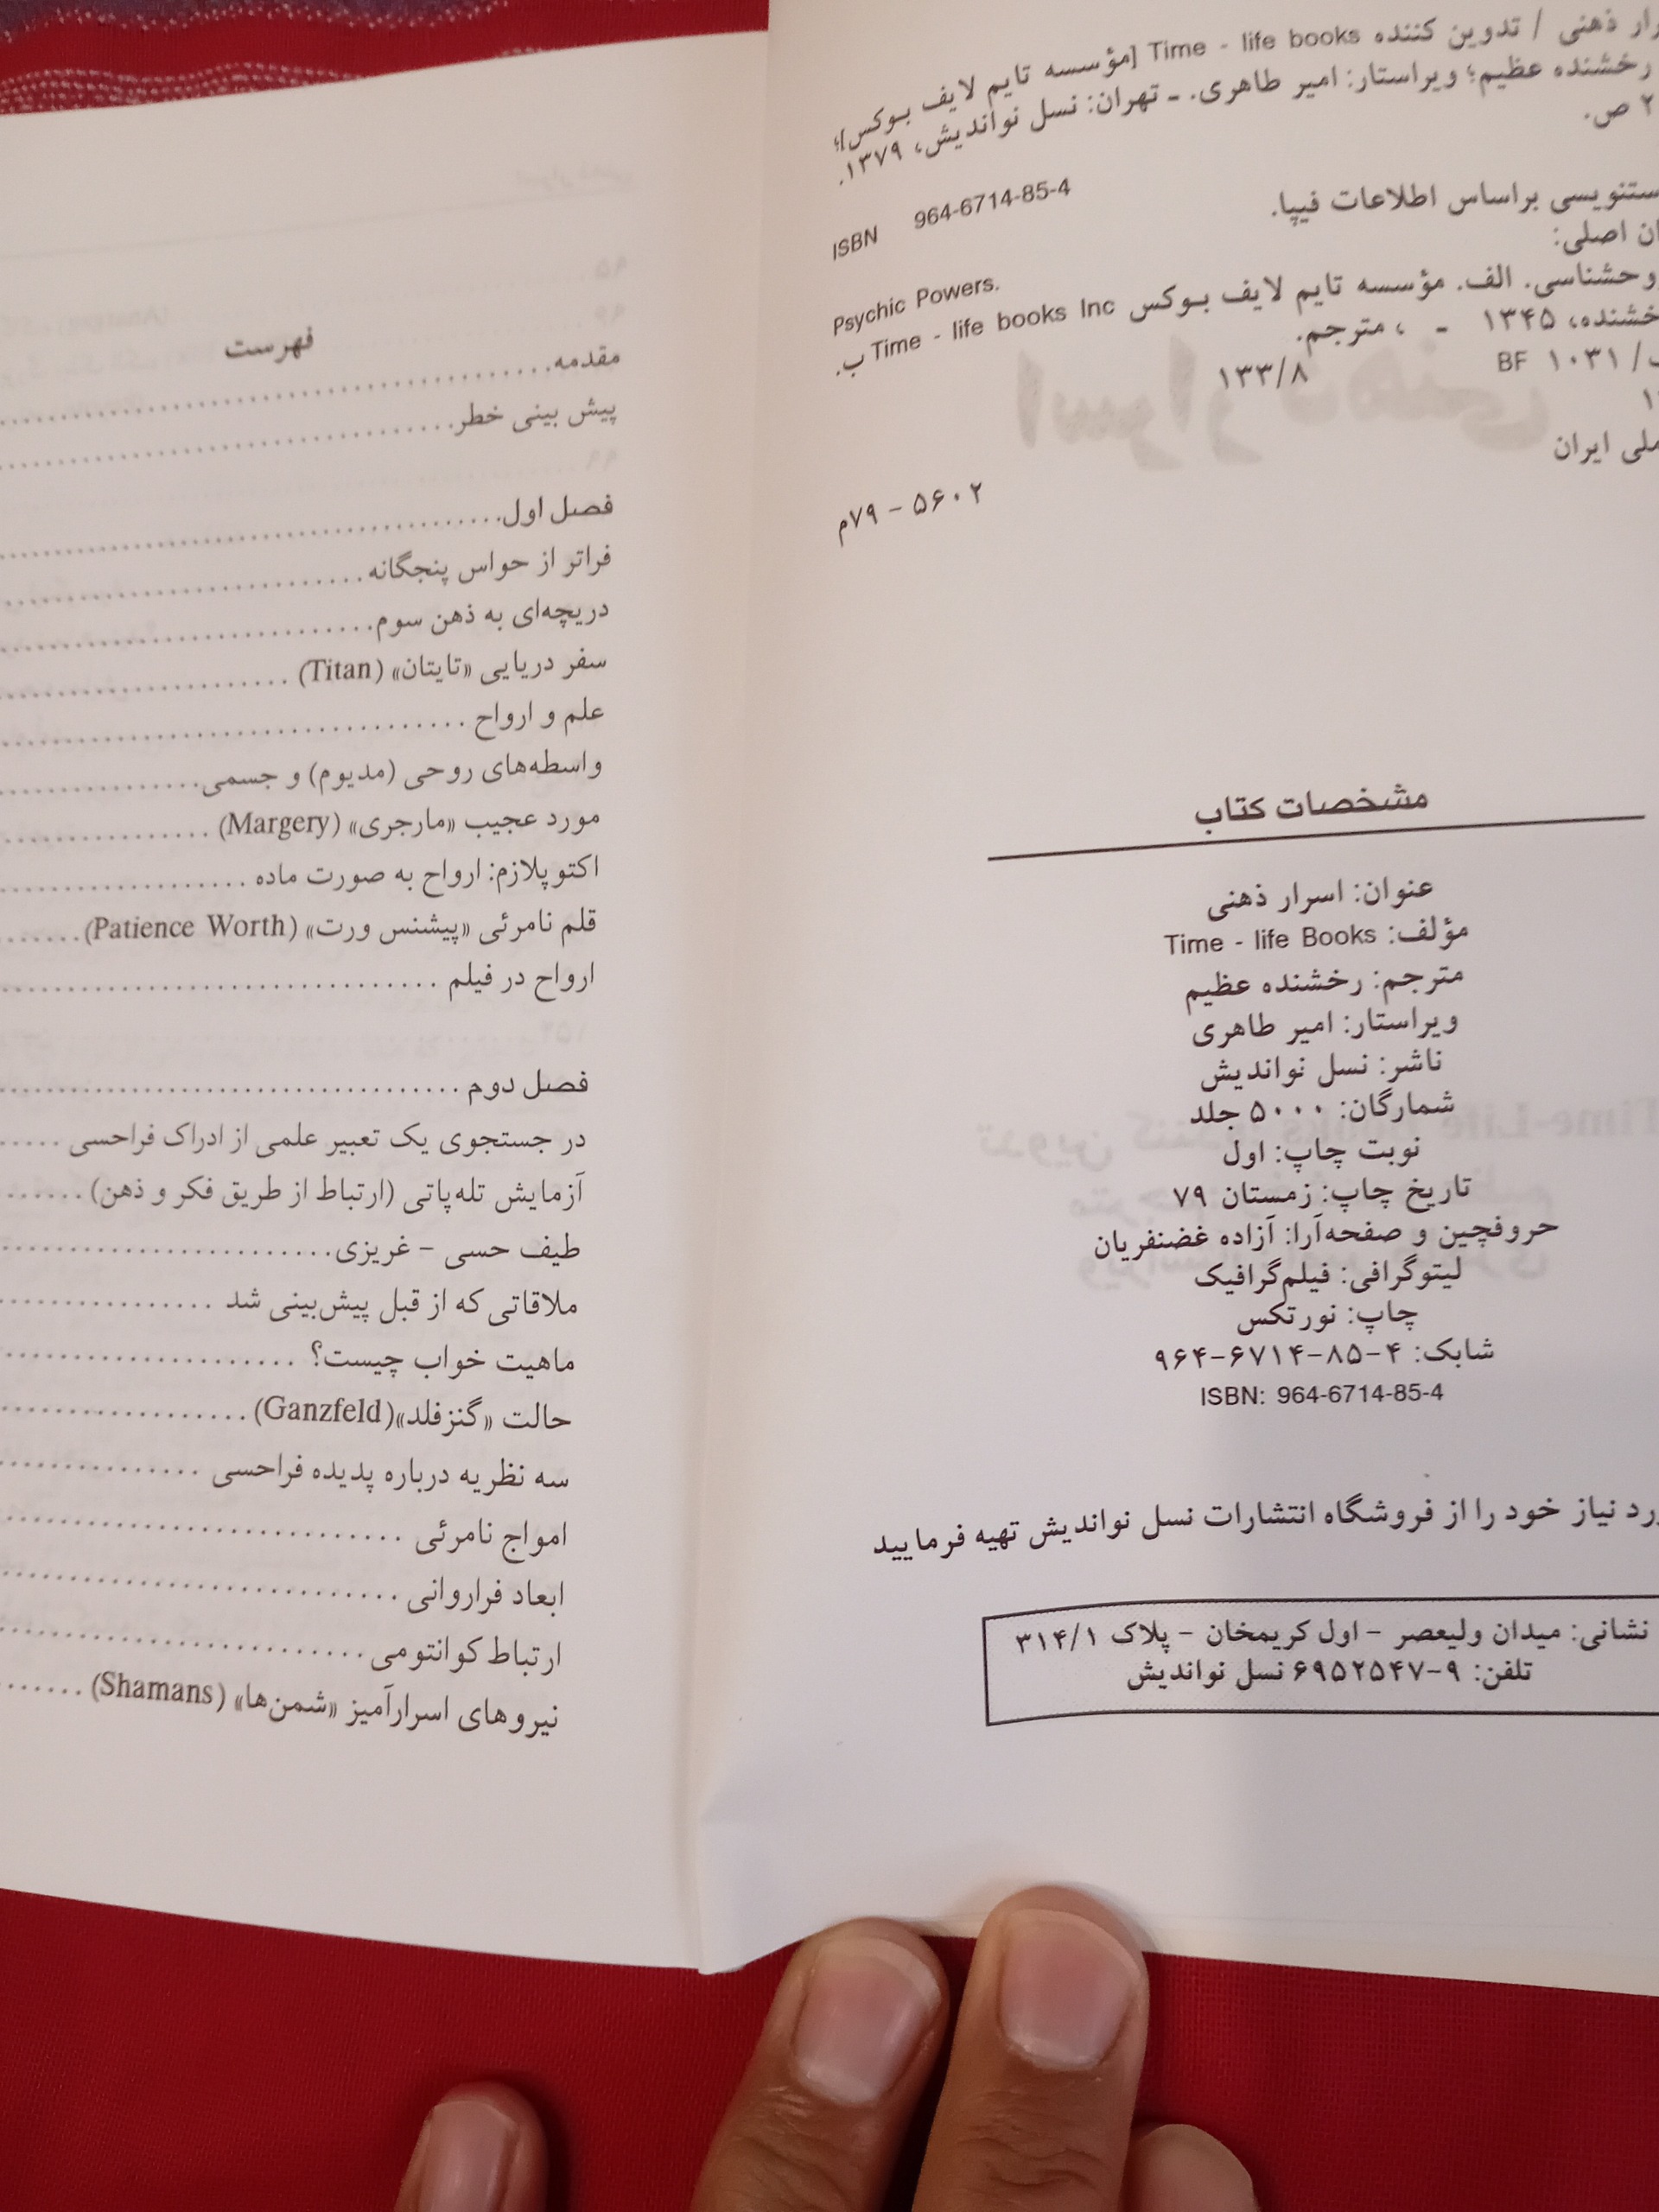 رار ذهنی / تدوین کننده Time - life books [مؤسسه تایم لایف بوکس]؛
رخشنده عظیم؛ ویراستار: امیر طاهری. ـ تهران: نسل نواندیش، ۱۳۷۹.
۲ ص.
ISBN 964-6714-85-4
ستنویسی براساس اطلاعات فیپا.
ان اصلی:
Psychic Powers.
وحشناسی. الف. مؤسسه تایم لایف بوکس Time - life books Inc ب.
خشنده، ۱۳۴۵ - ، مترجم.
BF ۱۰۳۱ /
۱۳۳/۸
ملی ایران
۵۶۰۲ – ۷۹م
مشخصات کتاب
عنوان: اسرار ذهنی
مؤلف: Time - life Books
مترجم: رخشنده عظیم
ویراستار: امیر طاهری
ناشر: نسل نواندیش
شمارگان: ۵۰۰۰ جلد
نوبت چاپ: اول
تاریخ چاپ: زمستان ۷۹
حروفچین و صفحه‌آرا: آزاده غضنفریان
لیتوگرافی: فیلم‌گرافیک
چاپ: نورتکس
شابک: ۴-۸۵-۶۷۱۴-۹۶۴
ISBN: 964-6714-85-4
رد نیاز خود را از فروشگاه انتشارات نسل نواندیش تهیه فرمایید
نشانی: میدان ولیعصر – اول کریمخان – پلاک ۳۱۴/۱
تلفن: ۹-۶۹۵۲۵۴۷ نسل نواندیش
فهرست
مقدمه
پیش بینی خطر
فصل اول
فراتر از حواس پنجگانه
دریچه‌ای به ذهن سوم
سفر دریایی «تایتان» (Titan)
علم و ارواح
واسطه‌های روحی (مدیوم) و جسمی
مورد عجیب «مارجری» (Margery)
اکتوپلازم: ارواح به صورت ماده
قلم نامرئی «پیشنس ورت» (Patience Worth)
ارواح در فیلم
فصل دوم
در جستجوی یک تعبیر علمی از ادراک فراحسی
آزمایش تله‌پاتی (ارتباط از طریق فکر و ذهن)
طیف حسی – غریزی
ملاقاتی که از قبل پیش‌بینی شد
ماهیت خواب چیست؟
حالت «گنزفلد»(Ganzfeld)
سه نظریه درباره پدیده فراحسی
امواج نامرئی
ابعاد فراروانی
ارتباط کوانتومی
نیروهای اسرارآمیز «شمن‌ها» (Shamans)